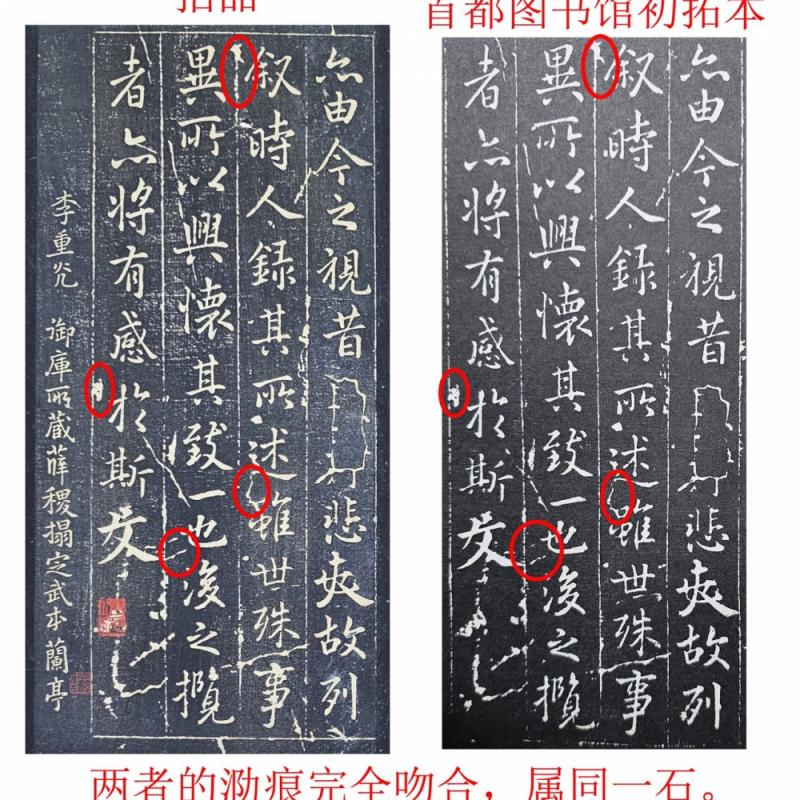 拍品
首都图书馆初拓本
亦由今之視昔悲夫故列
叙時人錄其所述雖世殊事
異所以興懷其致一也後之攬
者亦将有感於斯文
李重光 御庫所藏薛稷搨定武本蘭亭
亦由今之視昔悲夫故列
叙時人錄其所述雖世殊事
異所以興懷其致一也後之攬
者亦将有感於斯文
两者的泐痕完全吻合，属同一石。